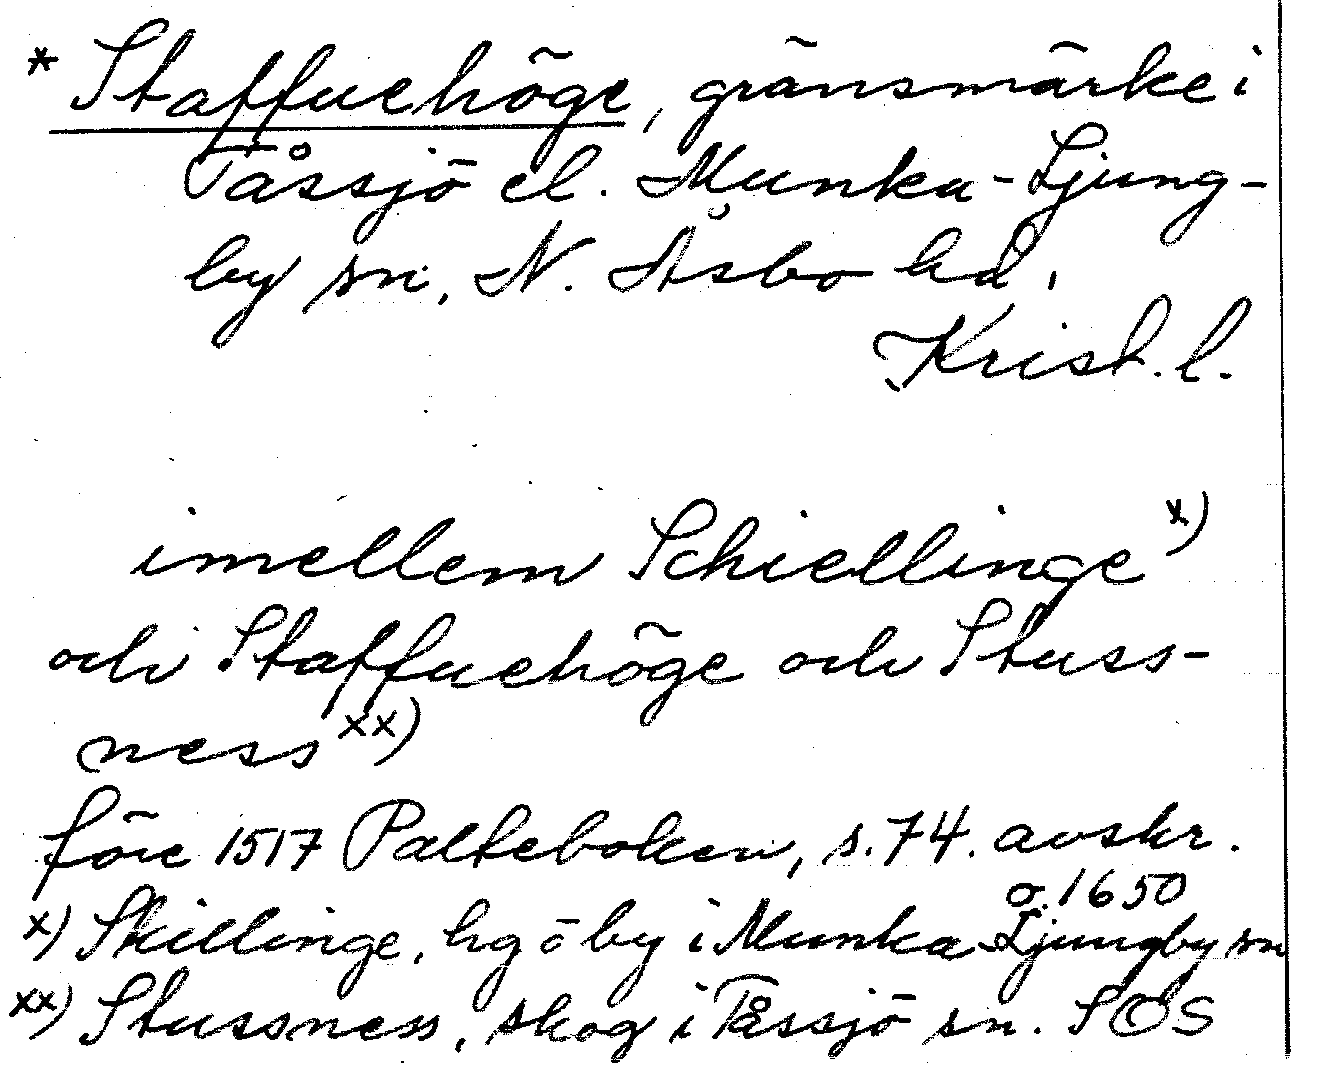 * Staffuehöge, gränsmärke i
Tåssjö el. Munka-Ljung-
by sn, N. Åsbo hd,
Krist. l.
imellem Schiellinge x)
och Staffuehöge och Stuss-
ness xx)
före 1517 Palteboken, s. 74. avskr.
o. 1650
x) Skillinge, hg o by i Munka Ljungby sn
xx) Stussness, skog i Tåssjö sn. SOS